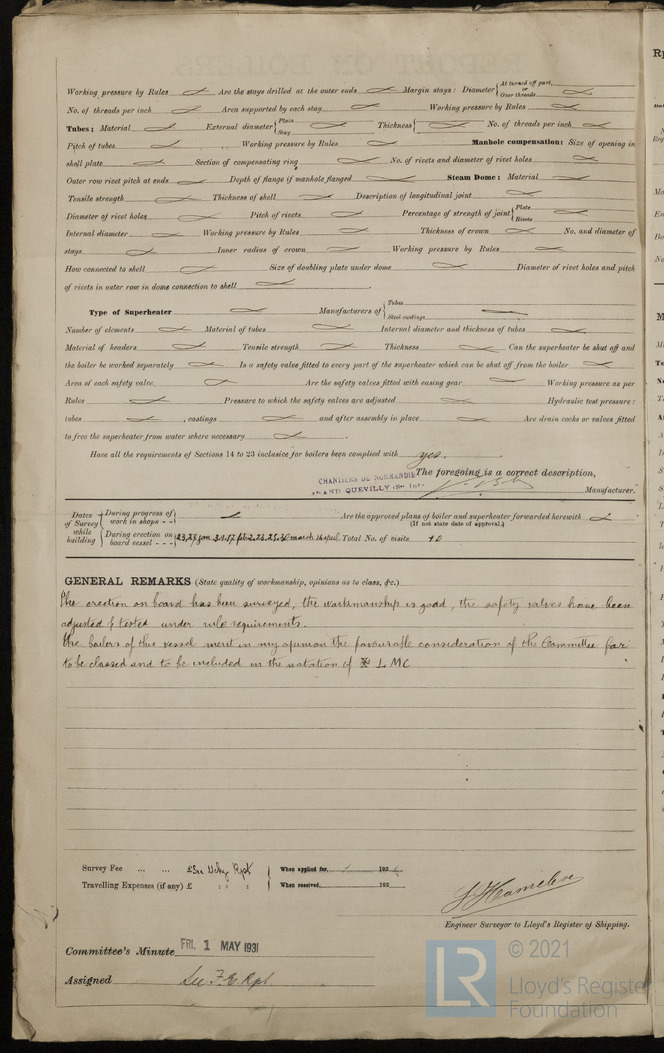 Working pressure by Rules Are the stays drilled at the outer ends Margin stays: Diameter { At turned off part, or Over threads
No. of threads per inch Area supported by each stay Working pressure by Rules
Tubes: Material External diameter { Plain Stay Thickness { No. of threads per inch
Pitch of tubes Working pressure by Rules Manhole compensation: Size of opening in
shell plate Section of compensating ring No. of rivets and diameter of rivet holes
Outer row rivet pitch at ends Depth of flange if manhole flanged Steam Dome: Material
Tensile strength Thickness of shell Description of longitudinal joint
Diameter of rivet holes Pitch of rivets Percentage of strength of joint { Plate Rivets
Internal diameter Working pressure by Rules Thickness of crown No. and diameter of
stays Inner radius of crown Working pressure by Rules
How connected to shell Size of doubling plate under dome Diameter of rivet holes and pitch
of rivets in outer row in dome connection to shell
Type of Superheater Manufacturers of { Tubes Steel castings
Number of elements Material of tubes Internal diameter and thickness of tubes
Material of headers Tensile strength Thickness Can the superheater be shut off and
the boiler be worked separately Is a safety valve fitted to every part of the superheater which can be shut off from the boiler
Area of each safety valve Are the safety valves fitted with easing gear Working pressure as per
Rules Pressure to which the safety valves are adjusted Hydraulic test pressure:
tubes , castings and after assembly in place Are drain cocks or valves fitted
to free the superheater from water where necessary
Have all the requirements of Sections 14 to 23 inclusive for boilers been complied with yes.
CHANTIERS DE NORMANDIE The foregoing is a correct description,
GRAND QUEVILLY Manufacturer.
Dates of Survey while building { During progress of work in shops - - Are the approved plans of boiler and superheater forwarded herewith
(If not state date of approval.)
During erection on board vessel - - - Total No. of visits 10
GENERAL REMARKS (State quality of workmanship, opinions as to class, &c.)
The erection on board has been surveyed, the workmanship is good, the safety valves have been
adjusted & tested under rule requirements.
The boilers of this vessel merit in my opinion the favourable consideration of the Committee for
to be classed and to be included in the notation of ✠ LMC
Survey Fee ... ... £ See Rpt When applied for, 192
Travelling Expenses (if any) £ : : When received, 192
Engineer Surveyor to Lloyd's Register of Shipping.
Committee's Minute FRI. 1 MAY 1931
Assigned See F.E. Rpt.
LR © 2021 Lloyd's Register Foundation